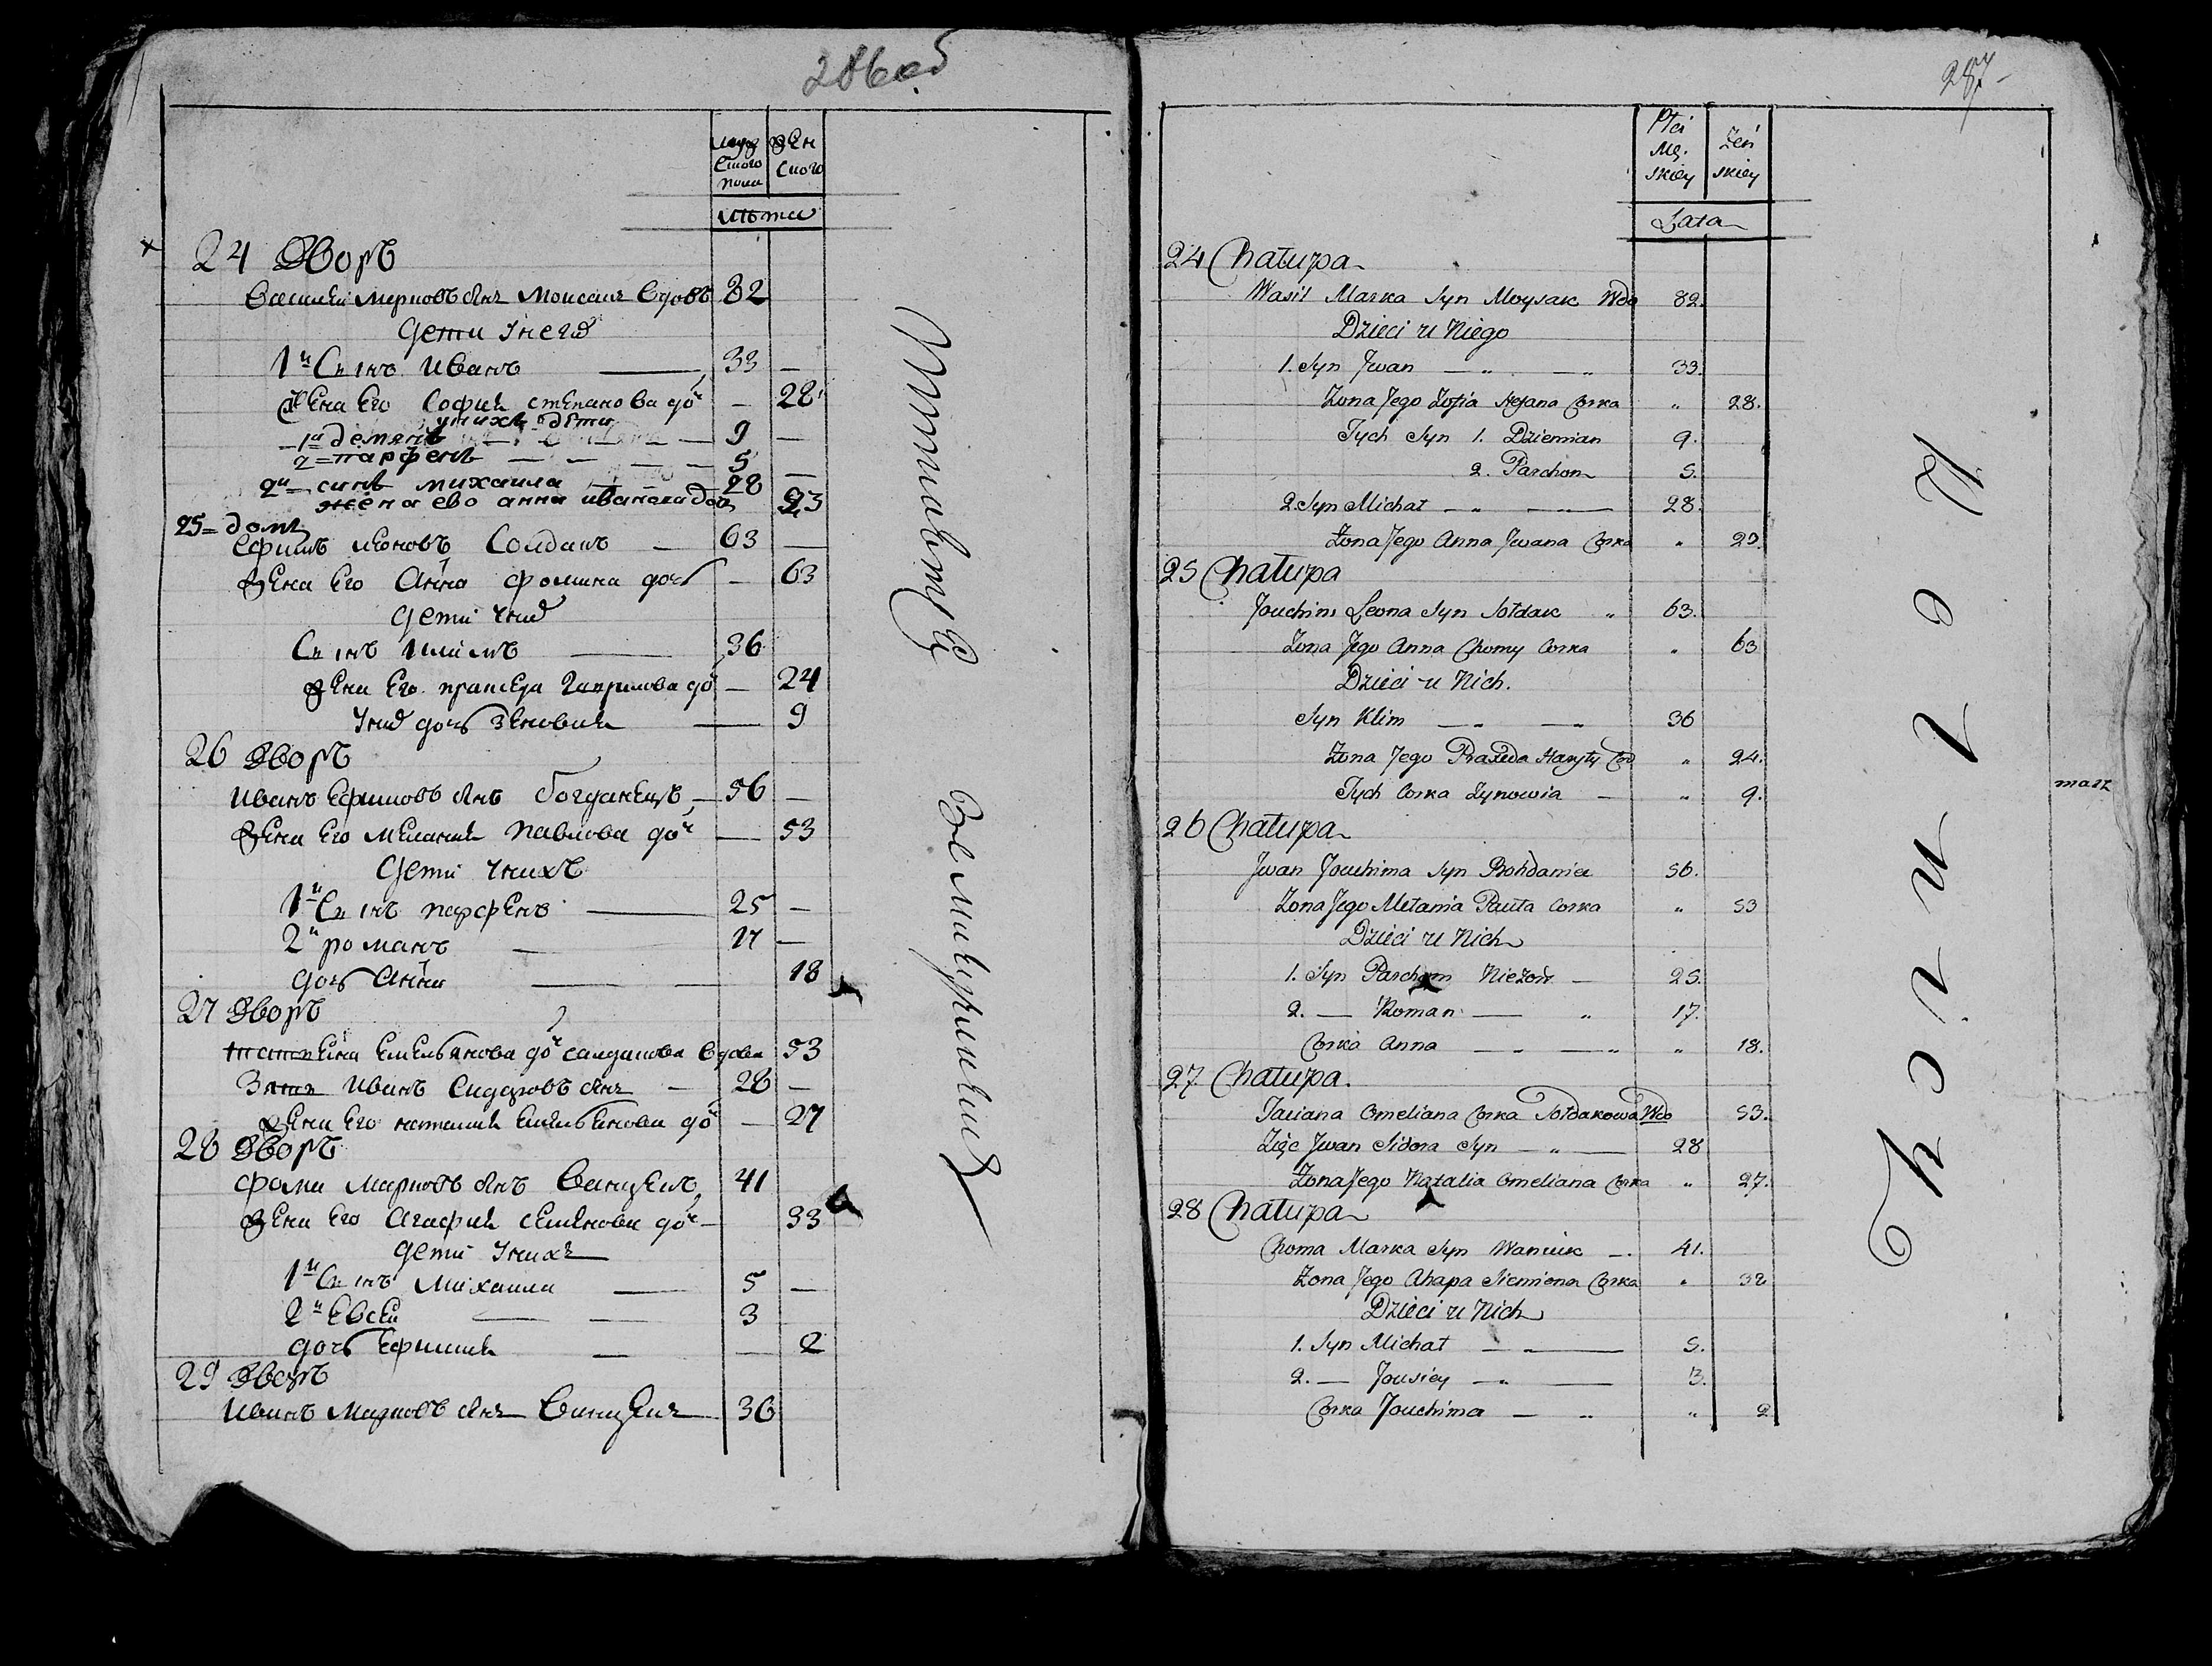 286 об
муж
ского
пола
жен
ского
лѣта
24 Дворъ
Василей марковъ сынъ моисаκъ вдовъ 82
Дети у него
1й Сынъ Иванъ 33 —
жена Его София степанова доч — 28
у нихъ дѣти
1й демянъ 9 —
2 парфенъ 5 —
2й синъ михаила 28
жена ево анна иванова доч 23
25 = домъ
Ефимъ леоновъ Солдакъ 63 —
жена Его Анна фомина дочь — 63
Дети у нихъ
Сынъ Климъ 36
жена Его пракседа гаврилова доч — 24
У них дочь Зеновия — 9
26 Дворъ
Иванъ Ефимовъ сынъ богданецъ 56 —
жена Его мелания павлова доч — 53
Дети у нихъ
1й Сынъ парфенъ 25 —
2й романъ 17 —
дочь Анна 18
27 Дворъ
татиена Емельянова доч салдакова вдова 53
Зять Иванъ Сидоровъ сынъ 28 —
жена Его наталия Емельянова доч — 27
28 Дворъ
фома марковъ сынъ Ваницекъ 41
жена Его Агафия семенова доч — 33
Дети у нихъ
1й Сынъ михаила 5 —
2й Евсей 3
дочь Ефимия — 2
29 Дворъ
Иванъ марковъ сынъ Ваницекъ 36
287
Płci
Mę.
skiey
Żeń
skiey
Lata
24 Chałupa
Wasil Marka Syn Moysak Wdo 82.
Dzieci u Niego
1. Syn Jwan — „ — „ 33.
Żona Jego Zofia Stefana Corka „ 28.
Tych Syn 1. Dziemian 9.
2. Parchom 5.
2. Syn Michał — „ — „ 28.
Żona Jego Anna Jwana Corka „ 23.
25 Chałupa
Jouchim Leona Syn Sołdak „ 63.
Żona Jego Anna Chomy Corka „ 63
Dzieci u Nich.
Syn Klim — „ — „ 36
Żona Jego Praxeda Haryły Cor „ 24.
Tych Corka Zynowia — „ 9.
26 Chałupa
Jwan Jouchima Syn Bohdaniec 56.
Żona Jego Mełania Pauła Corka „ 53
Dzieci u Nich
1. Syn Parchom Nieżon — 25.
2. — Roman — „ 17.
Corka Anna — „ — „ „ 18.
27 Chałupa.
Taciana Omeliana Corka Sołdakowa Wdo 53.
Zięc Jwan Sidora Syn — „ — 28
Żona Jego Natalia Omeliana Corka „ 27.
28 Chałupa
Choma Marka Syn Waniuk — . 41.
Żona Jego Ahapa Siemiona Corka „ 32
Dzieci u Nich
1. Syn Michał — „ — 5.
2. — Jousiey — „ — 3.
Corka Jouchima — „ „ 2
marz